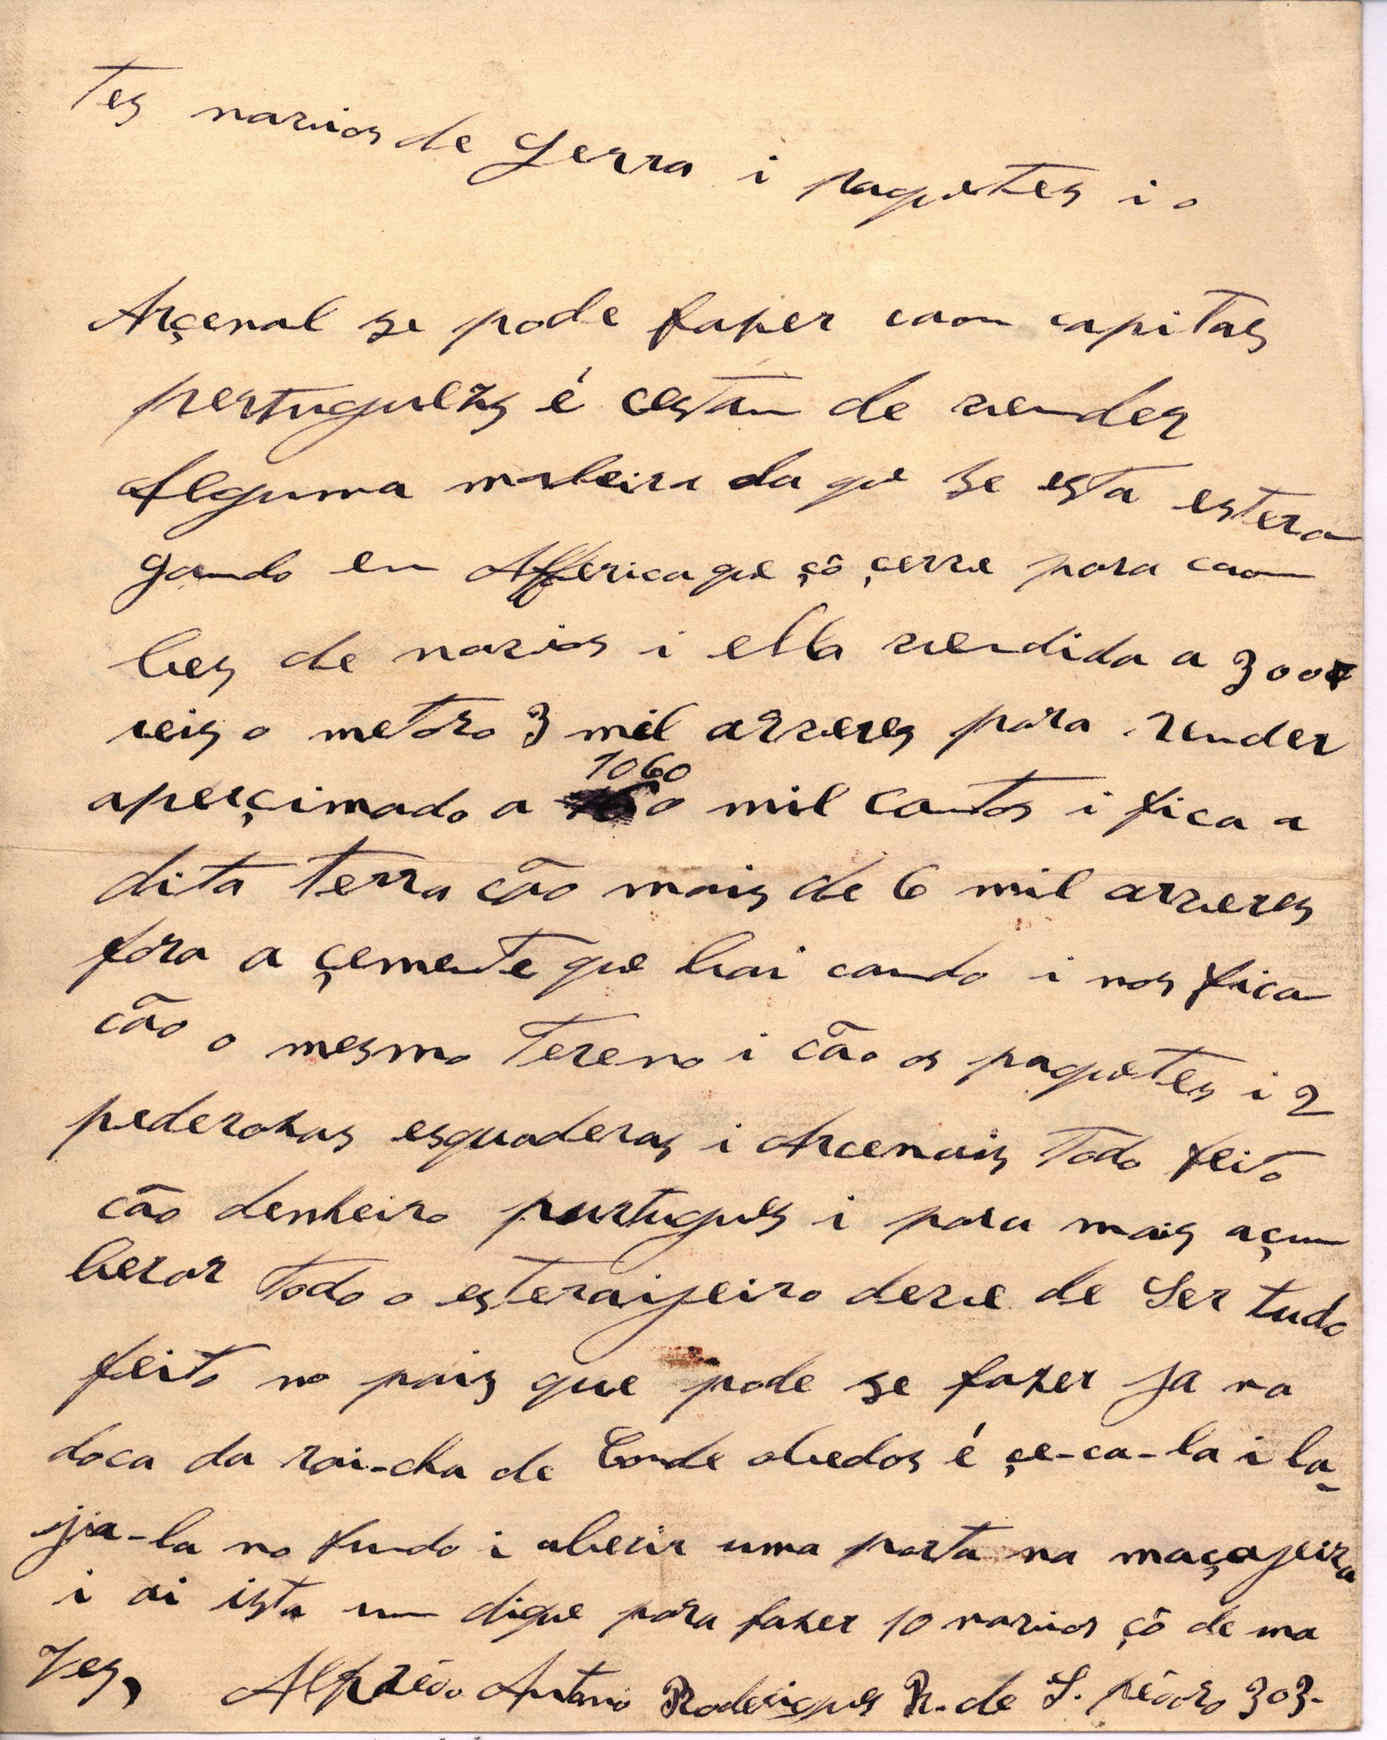 Tes navios de Gerra i paquetes i o
Arçenal se pode fazer com capitas
pertuguezs é cestam de vender
Alguma madeira da que se esta estera
gando em Afferica que çô çerve para com
bes de navios i ella vendida a 3000
reis o metro 3 mil arveres para vender
aperçimado a 1060 mil contos i fica a
dita terra cão mais de 6 mil arveres
fora a çemente que hai caindo i nos fica
cão o mesmo Tereno i cão os paquetes i 2
pederozas esquaderas i Arcenais Todo feito
cão denheiro purtugues i para mais açum
berar Todo o esteraijeiro deve de Ser tudo
feito no pais que pode se fazer ja na
doca da roi-cha de Conde obedos é çe-ca-la i la-
ja-la no fundo i aberir uma porta na maçajeira
i ai ista um dique para fazer 10 navios çô de ma
Ves, Alfrêdo Antonio Roderigues R. de S. pêdro 303-